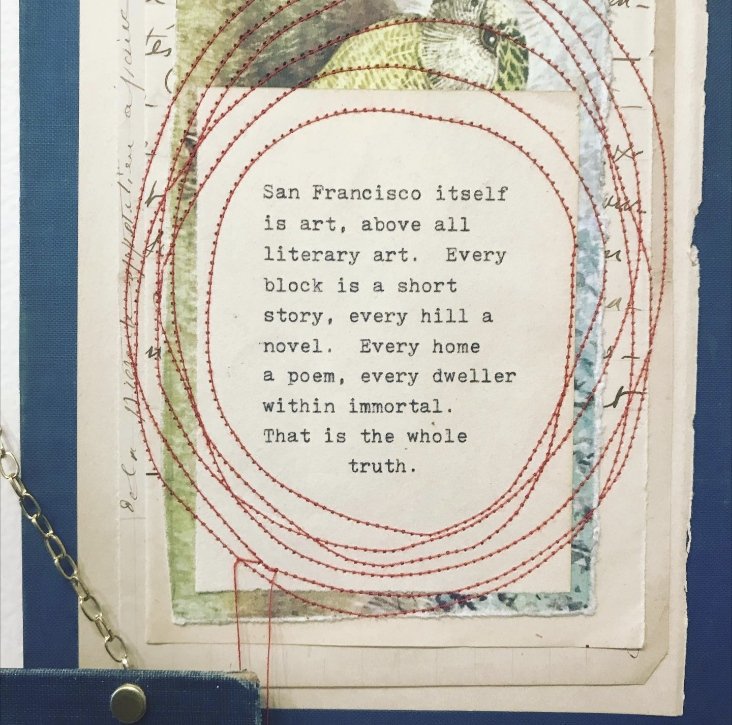 San Francisco itself
is art, above all
literary art.  Every
block is a short
story, every hill a
novel.  Every home
a poem, every dweller
within immortal.
That is the whole
truth.